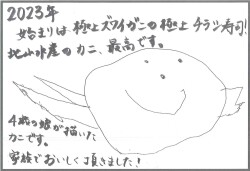 2023年
始まりは極上ズワイガニの極上チラシ寿司!
北山水産のカニ、最高です。
4歳の娘が描いた
カニです。
家族でおいしく頂きました!